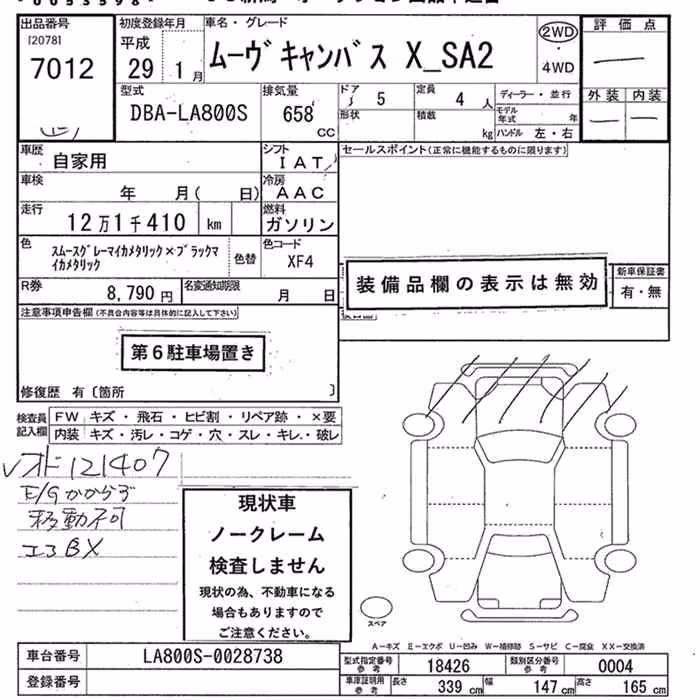 出品番号
[2078]
7012
初度登録年月
平成
29 1月
車名・グレード
ムーヴキャンバス X_SA2
2WD
・
4WD
評価点
外装 内装
型式
DBA-LA800S
排気量
658
CC
ドア
5
形状
定員
4人
積載
kg
ディーラー・並行
モデル年式 年
ハンドル 左・右
車歴
自家用
シフト
IAT
セールスポイント(正常に機能するものに限ります)
車検
年 月( 日)
冷房
AAC
走行
12万1千410 km
燃料
ガソリン
色
スムースグレーマイカメタリック×ブラックマ
イカメタリック
色替
色コード
XF4
装備品欄の表示は無効
新車保証書
有・無
R券
8,790 円
名変通知期限
月 日
注意事項申告欄(不具合内容等は具体的に記入して下さい)
第6駐車場置き
修復歴 有〔箇所 〕
検査員
記入欄
FW キズ・飛石・ヒビ割・リペア跡・×要
内装 キズ・汚レ・コゲ・穴・スレ・キレ・破レ
121407
E/Gかからず
移動不可
エコBX
現状車
ノークレーム
検査しません
現状の為、不動車になる
場合もありますので
ご注意ください。
スペア
A−キズ E−エクボ U−凹み W−補修跡 S−サビ C−腐食 XX−交換済
車台番号
LA800S-0028738
登録番号
型式指定番号
参考
18426
類別区分番号
参考
0004
車庫証明用
参考
長さ 339 cm 幅 147 cm 高さ 165 cm